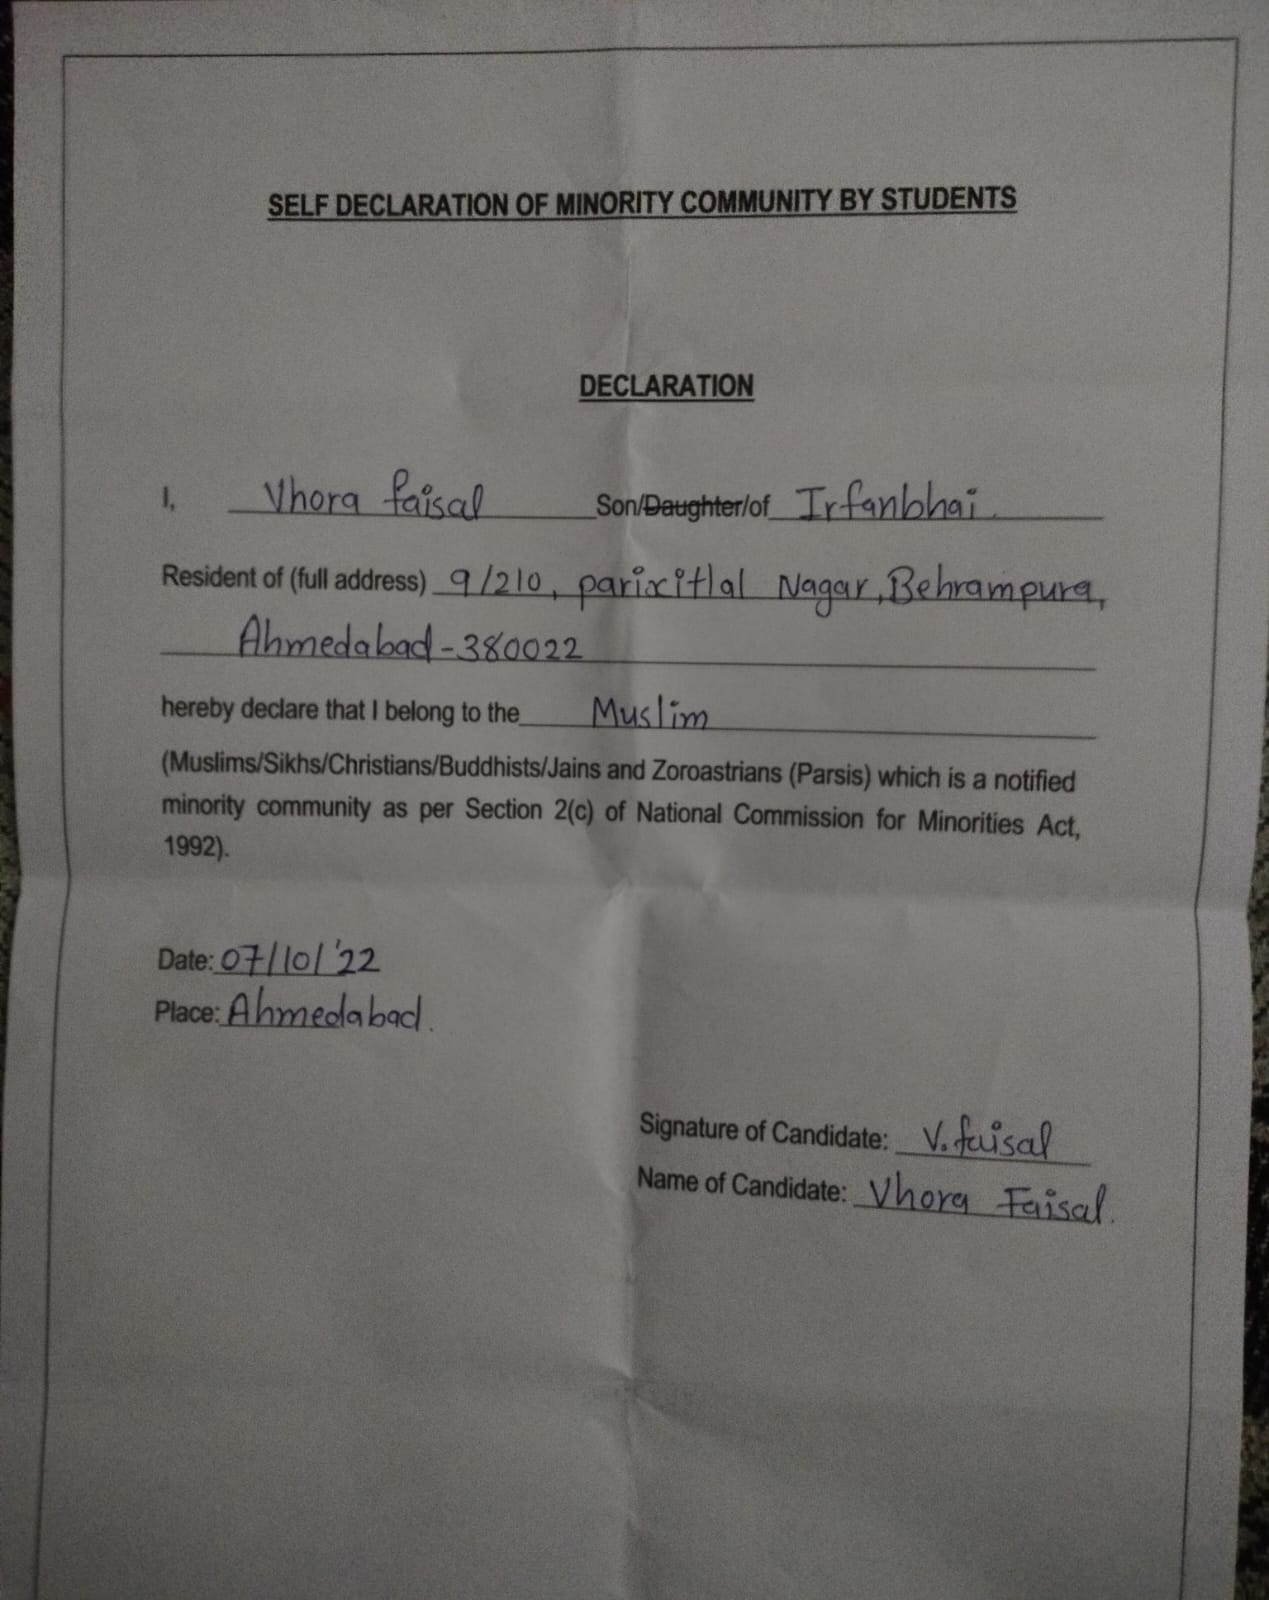 SELF DECLARATION OF MINORITY COMMUNITY BY STUDENTS
DECLARATION
I, Vhora faisal Son/Daughter/of Irfanbhai.
Resident of (full address) 9/210, parixitlal Nagar, Behrampura,
Ahmedabad-380022
hereby declare that I belong to the Muslim
(Muslims/Sikhs/Christians/Buddhists/Jains and Zoroastrians (Parsis) which is a notified
minority community as per Section 2(c) of National Commission for Minorities Act,
1992).
Date: 07/10/'22
Place: Ahmedabad.
Signature of Candidate: V. faisal
Name of Candidate: Vhora Faisal.